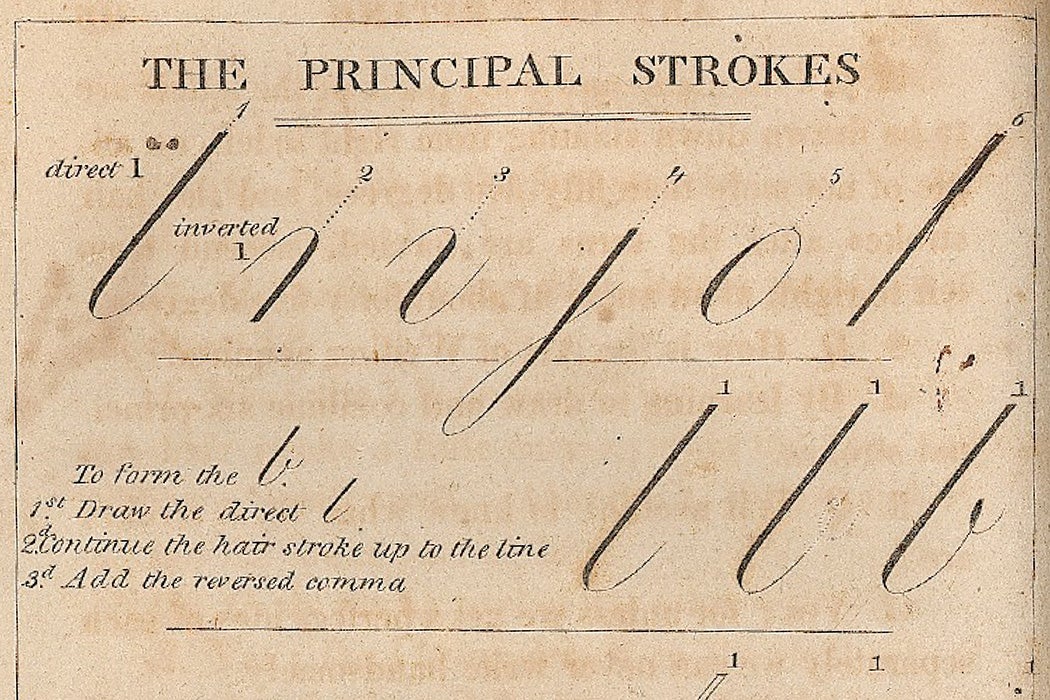 THE PRINCIPAL STROKES
1 2 3 4 5 6
direct 1
inverted
1
1 1 1
To form the b.
1st Draw the direct l
2d Continue the hair stroke up to the line
3d Add the reversed comma
1 1 1